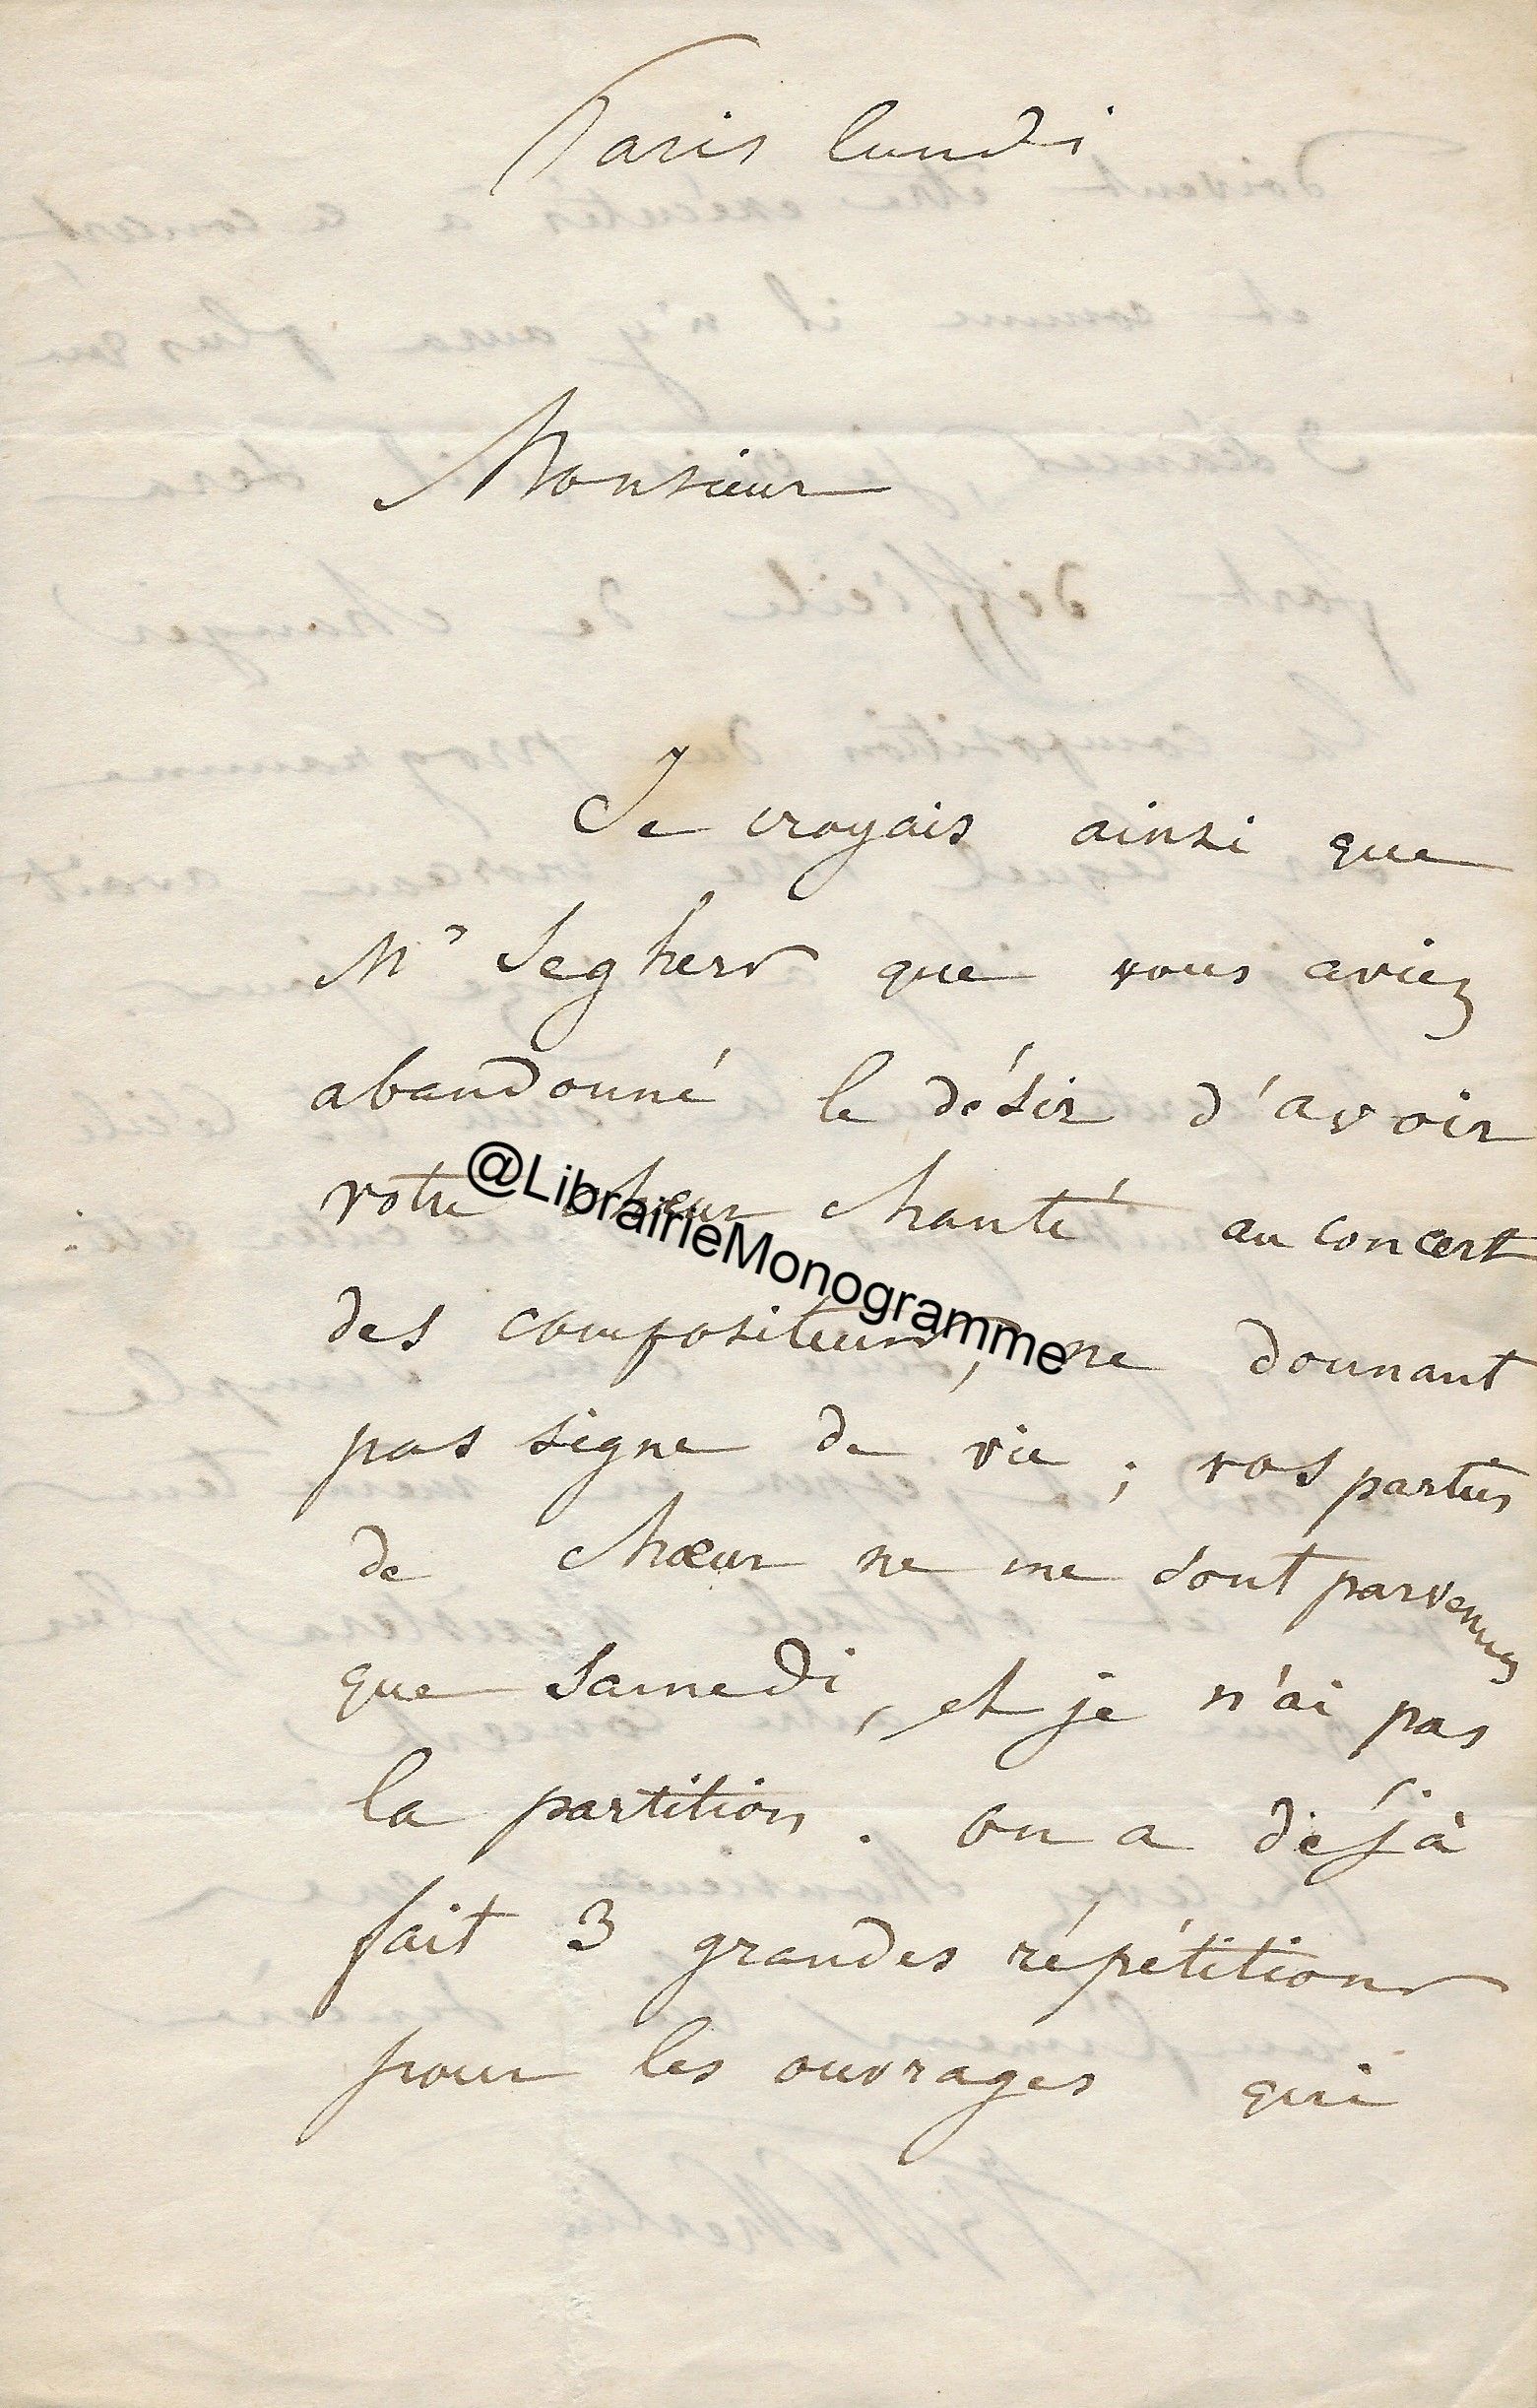 Paris lundi
Monsieur
Je croyais ainsi que
Mr Seghers que vous aviez
abandonné le désir d'avoir
votre chœur chanté au concert
des compositeurs, ne donnant
pas signe de vie ; vos parties
de chœur ne me sont parvenues
que samedi, et je n'ai pas
la partition. on a déjà
fait 3 grandes répétitions
pour les ouvrages qui
@LibrairieMonogramme